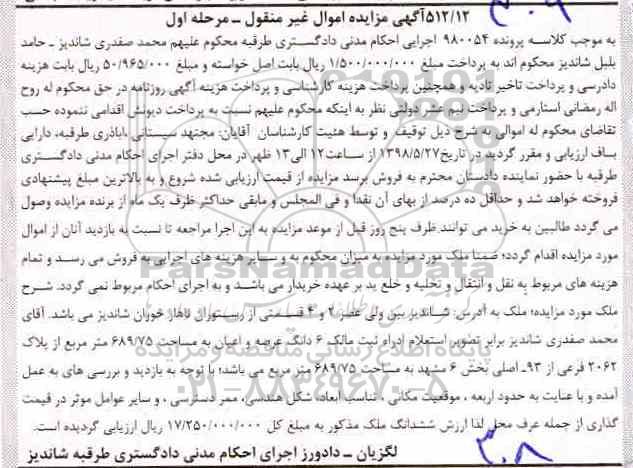 ۵۱۲/۱۲آگهی مزایده اموال غیر منقول ـ مرحله اول
به موجب کلاسه پرونده ۹۸۰۰۵۴ اجرایی احکام مدنی دادگستری طرقبه محکوم علیهم محمد صفدری شاندیز ـ حامد
بلبل شاندیز محکوم اند به پرداخت مبلغ ۱/۵۰۰/۰۰۰/۰۰۰ ریال بابت اصل خواسته و مبلغ ۵۰/۹۶۵/۰۰۰ ریال بابت هزینه
دادرسی و پرداخت تاخیر تادیه و همچنین پرداخت هزینه کارشناسی و پرداخت هزینه آگهی روزنامه در حق محکوم له روح
اله رمضانی استارمی و پرداخت نیم عشر دولتی نظر به اینکه محکوم علیهم نسبت به پرداخت دیونش اقدامی ننموده حسب
تقاضای محکوم له اموالی به شرح ذیل توقیف و توسط هئیت کارشناسان آقایان: مجتهد سیستانی ،اباذری طرقبه، دارایی
بیاف ارزیابی و مقرر گردید در تاریخ۱۳۹۸/۵/۲۷ از ساعت۱۲ الی۱۳ ظهر در محل دفتر اجرای احکام مدنی دادگستری
طرقبه با حضور نماینده دادستان محترم به فروش برسد مزایده از قیمت ارزیابی شده شروع و به بالاترین مبلغ پیشنهادی
فروخته خواهد شد و حداقل ده درصد از بهای آن نقدا و فی المجلس و مابقی حداکثر ظرف یک ماه از برنده مزایده وصول
می گردد طالبین به خرید می توانند ظرف پنج روز قبل از موعد مزایده به این اجرا مراجعه تا نسبت به بازدید آنان از اموال
مورد مزایده اقدام گردد؛ ضمنا ملک مورد مزایده به میزان محکوم به و سایر هزینه های اجرایی به فروش می رسد و تمام
هزینه های مربوط به نقل و انتقال و تخلیه و خلع ید بر عهده خریدار می باشد و به اجرای احکام مربوط نمی گردد. شرح
ملک مورد مزایده؛ ملک به آدرس: شاندیز بین ولی عصر ۲ و ۴ قسمتی از رستوران ناهار خوران شاندیز می باشد. آقای
محمد صفدری شاندیز برابر تصویر استعلام اداره ثبت مالک ۶ دانگ عرصه و اعیان به مساحت ۶۸۹/۷۵ متر مربع از پلاک
۲۰۶۲ فرعی از ۹۳ـ اصلی بخش ۶ مشهد به مساحت ۶۸۹/۷۵ متر مربع می باشد؛ با توجه به بازدید و بررسی های به عمل
آمده و با عنایت به حدود اربعه ، موقعیت مکانی ، تناسب ابعاد، شکل هندسی، ممر دسترسی ، و سایر عوامل موثر در قیمت
گذاری از جمله عرف محل لذا ارزش ششدانگ ملک مذکور به مبلغ کل ۱۷/۲۵۰/۰۰۰/۰۰۰ ریال ارزیابی گردیده است.
لگزیان ـ دادورز اجرای احکام مدنی دادگستری طرقبه شاندیز
۳۰۸
ParsNamadData
پایگاه اطلاع رسانی مناقصه و مزایده
۰۲۱-۸۸۳۴۹۶۷۰-۵